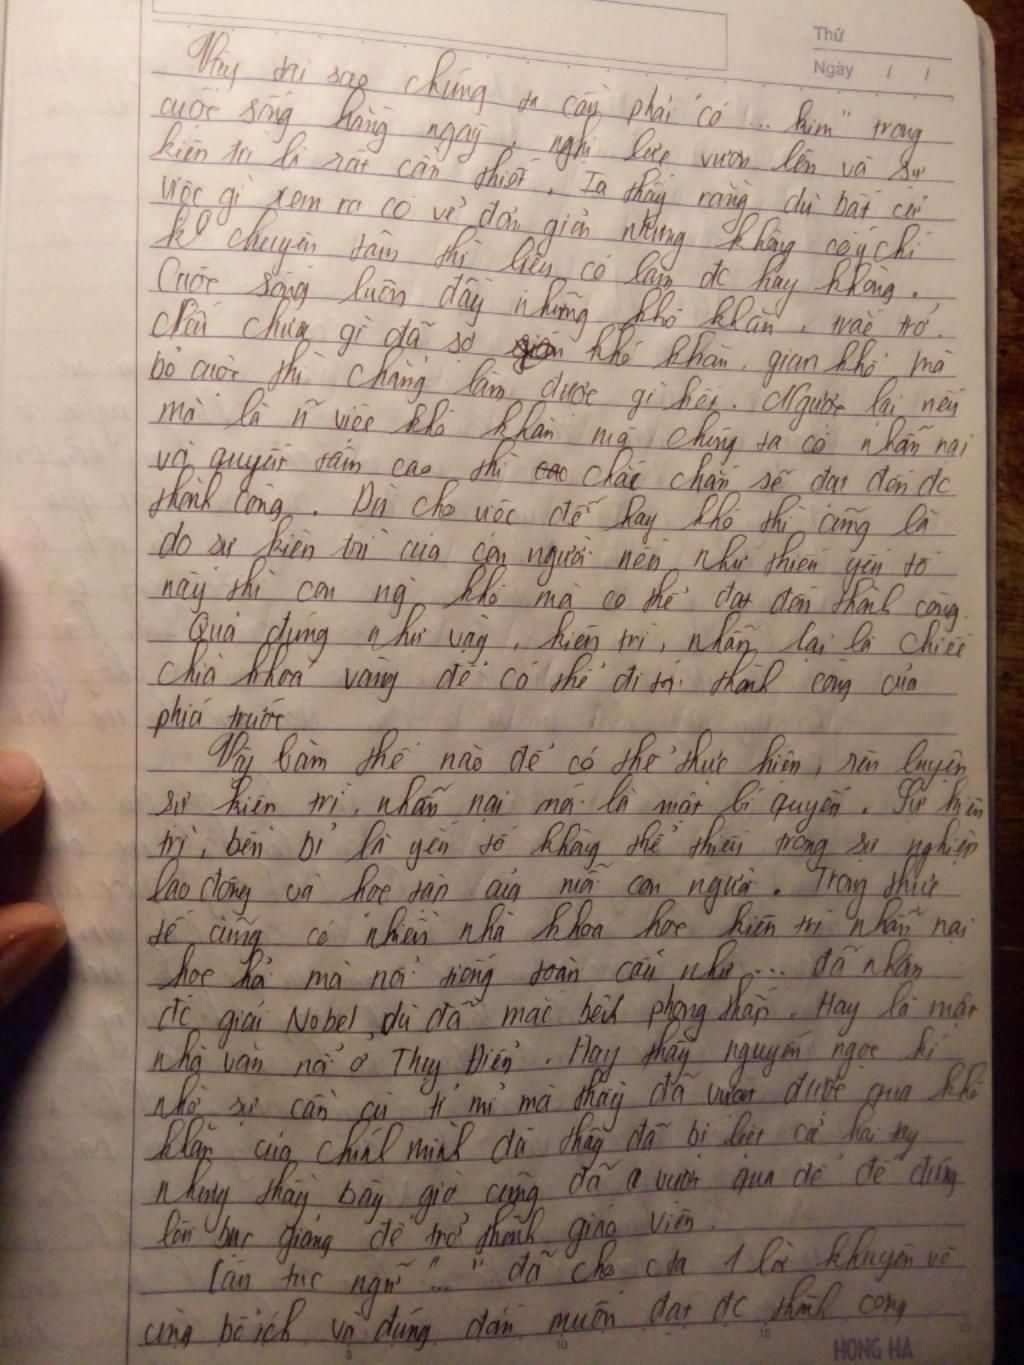 Thứ
Ngày / /
Vậy tại sao chúng ta cần phải "có ... kim" trong
cuộc sống hằng ngày, nghị lực vươn lên và sự
kiên trì là rất cần thiết. Ta thấy rằng dù bất cứ
việc gì xem ra có vẻ đơn giản nhưng không có ý chí
k chuyên tâm thì liệu có làm đc hay không.
Cuộc sống luôn đầy những khó khăn, trắc trở.
Nếu chưa gì đã sợ khó khăn, gian khổ mà
bỏ cuộc thì chẳng làm được gì hết. Ngược lại nếu
mà là n~ việc khó khăn mà chúng ta có nhẫn nại
và quyết tâm cao thì chắc chắn sẽ đạt đến đc
thành công. Dù cho việc dễ hay khó thì cũng là
do sự kiên trì của con người nên như thiếu yếu tố
này thì con ng khó mà có thể đạt đến thành công.
Quả đúng như vậy, kiên trì, nhẫn lại là chiếc
chìa khoá vàng để có thể đi tới thành công của
phía trước
Vậy làm thế nào để có thể thực hiện, rèn luyện
sự kiên trì, nhẫn nại nó là một bí quyết. Sự kiên
trì, bền bỉ là yếu tố không thể thiếu trong sự nghiệp
lao động và học tập của mỗi con người. Trong thực
tế cũng có nhiều nhà khoa học kiên trì nhẫn nại
học hỏi mà nổi tiếng toàn cầu như ... đã nhận
đc giải Nobel dù đã mắc bệnh phong thấp. Hay là một
nhà văn nổi ở Thụy Điển. Hay thầy nguyễn ngọc kí
nhờ sự cần cù tỉ mỉ mà thầy đã vượt được qua khó
khăn của chính mình dù thầy đã bị liệt cả hai tay
nhưng thầy bây giờ cũng đã vượt qua để đứng
lên bục giảng để trở thành giáo viên.
Câu tục ngữ "..." đã cho cta 1 lời khuyên vô
cùng bổ ích và đúng đắn muốn đạt đc thành công
HONG HA